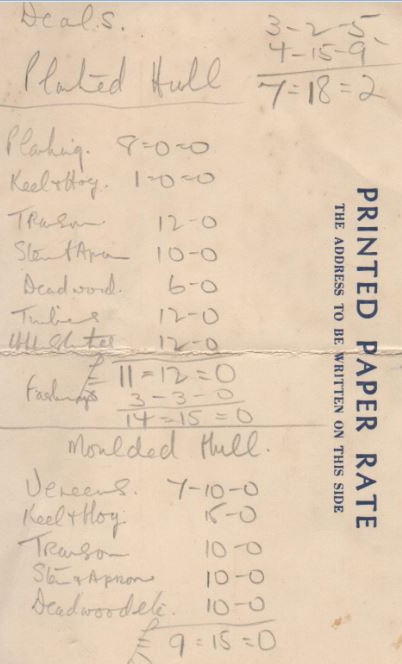 Deals.
3-2-5
4-15-9
7=18=2
Planked Hull
Planking. 8=0=0
Keel & Hog. 1=0=0
Transom 12-0
Stem & Apron 10-0
Deadwood. 6-0
Timbers 12-0
12-0
£ 11=12=0
Fastenings 3-3-0
14=15=0
Moulded Hull.
Veneers. 7-10-0
Keel & Hog. 15-0
Transom 10-0
Stem & Apron 10-0
Deadwood etc. 10-0
£ 9=15=0
PRINTED PAPER RATE
THE ADDRESS TO BE WRITTEN ON THIS SIDE